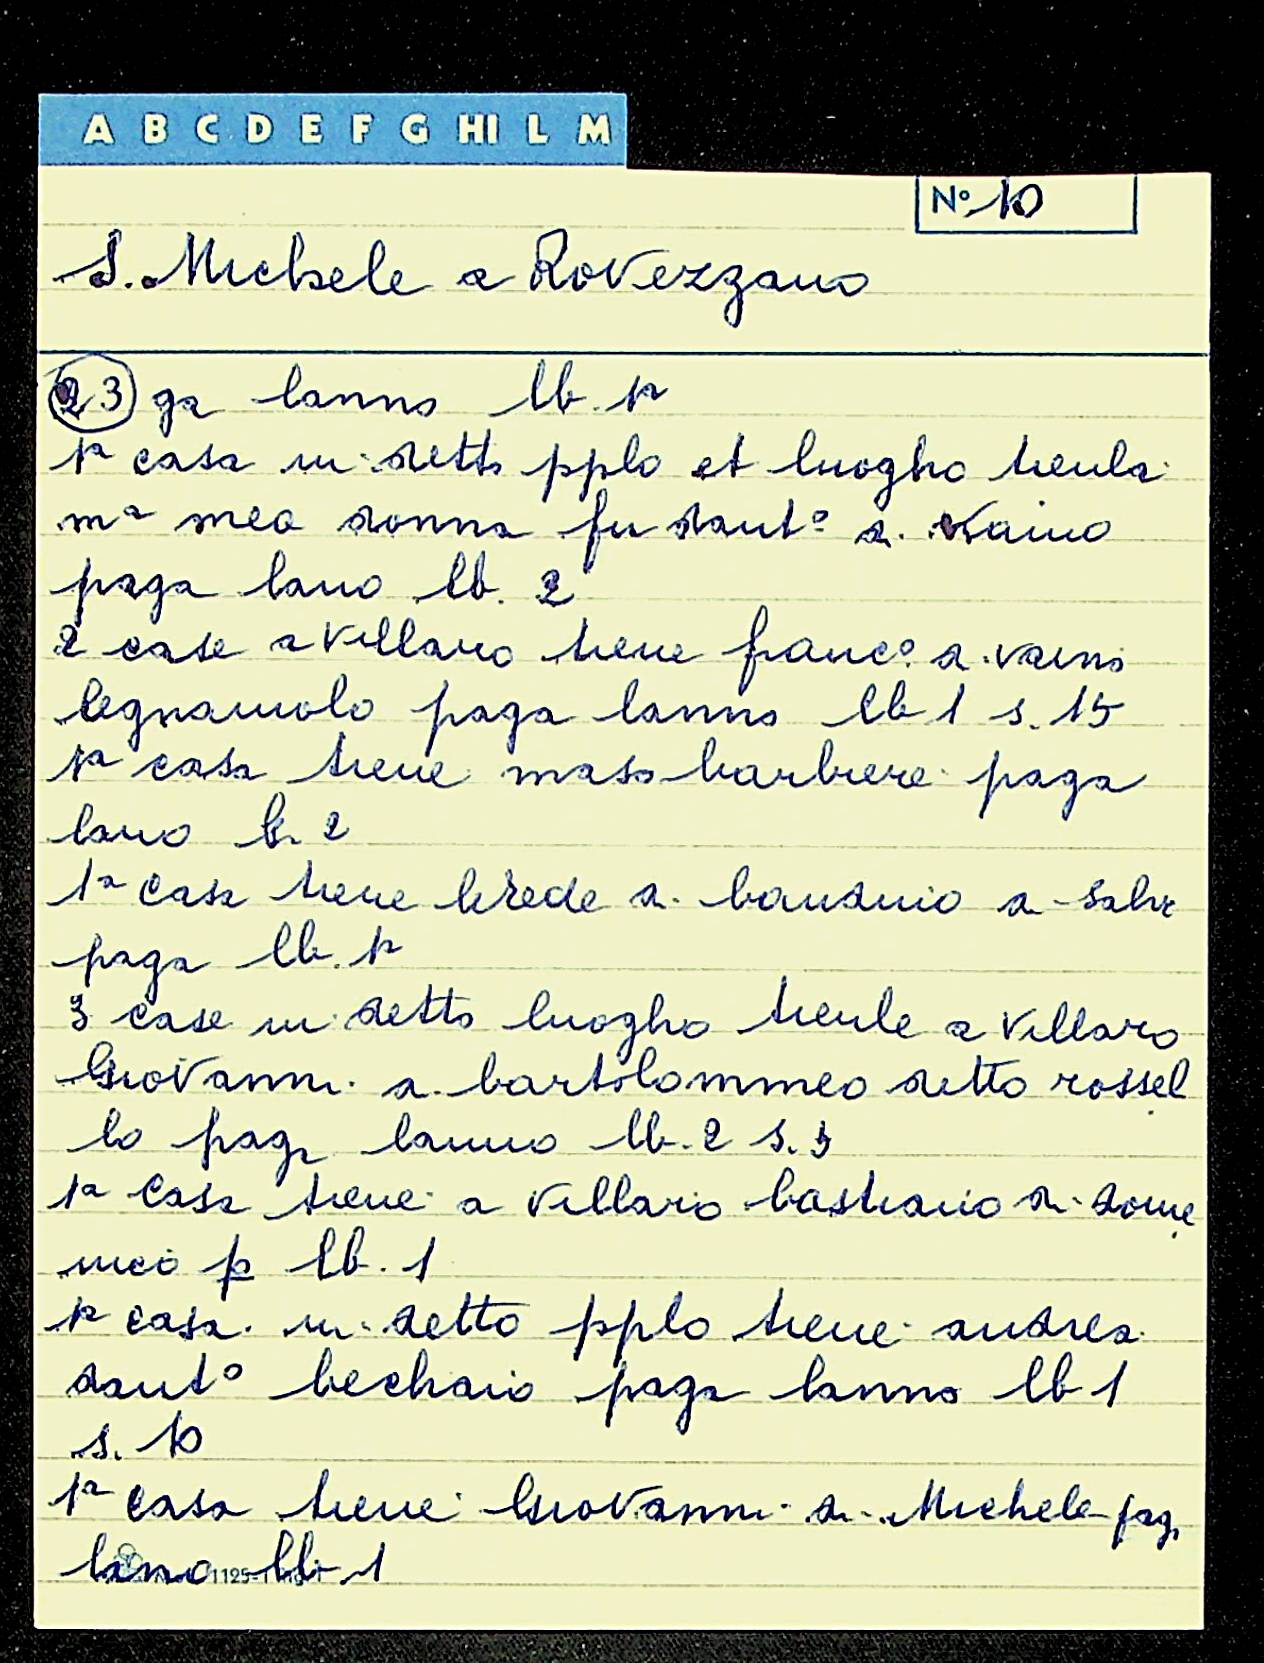 A B C D E F G HI L M
N° 10
S. Michele a Rovezzano
23 ga lanno lb. 1a
1a casa in detto pplo et luogho tienla
ma mea donna fu dant° d. Vaino
paga lano lb. 2
2 case a Villano tiene franc° d. vaino
legnaiuolo paga lanno lb 1 s. 15
1a casa tiene maso barbiere paga
lano lb. 2
1a casa tiene lerede d. bandino d. salvi
paga lb. 1a
3 case in detto luogho tienle a Villano
Giovanni d. bartolommeo detto rossel
lo pag lanno lb. 2 s. 5
1a casa tiene a Villano bastiano d. dome
nico p lb. 1
1a casa in detto pplo tiene andrea
dant° bechaio paga lanno lb 1
s. 10
1a casa tiene Giovanni d. Michele pag.
lano lb. 1